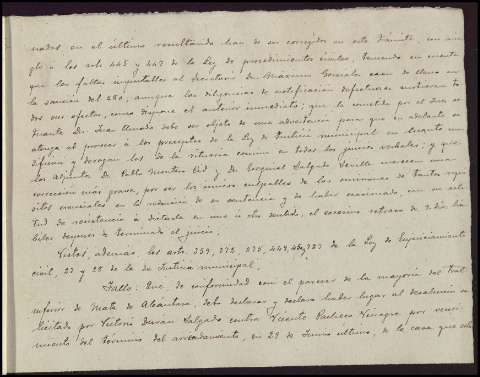 nados en el último resultando han de ser corregidos en este trámite, con arre
glo a los arts 445 y 447 de la Ley de procedimientos civiles, teniendo en cuenta
que las faltas imputables al Secretario Dn Máximo Gonzalo caen de lleno en
la sanción del 280, aunque las diligencias de notificación defectuosas surtieran to
dos sus efectos, como dispone el anterior inmediato; que la cometida por el Juez se
ñor debe ser objeto de una advertencia para que en adelante se
atenga al proveer a los preceptos de la Ley de Justicia municipal en cuanto mo
difican y derogan los de la rituaria común en todos los juicios verbales; y que
los adjuntos Dn Pablo Montes Cid y Dn Ezequiel Salgado Sevilla merecen una
corrección más grave, por ser los únicos culpables de las omisiones de tantos requi
sitos esenciales en la redacción de su sentencia y de haber ocasionado, con su acti
tud de resistencia a dictarla en uno u otro sentido, el excesivo retraso de 9 días há
biles después de terminado el juicio.
Vistos, además, los arts. 359, 372, 375, 449, y 723 de la Ley de Enjuiciamiento
civil, 23 y 25 de la de Justicia municipal,
Fallo: Que de conformidad con el parecer de la mayoría del Trial
inferior de Mata de Alcántara, debo declarar y declaro haber lugar al desahucio so
licitado por Victorio Durán Salgado contra Vicente Pacheco Vinagre por venci
miento del término del arrendamiento, en 29 de Junio último, de la casa que este